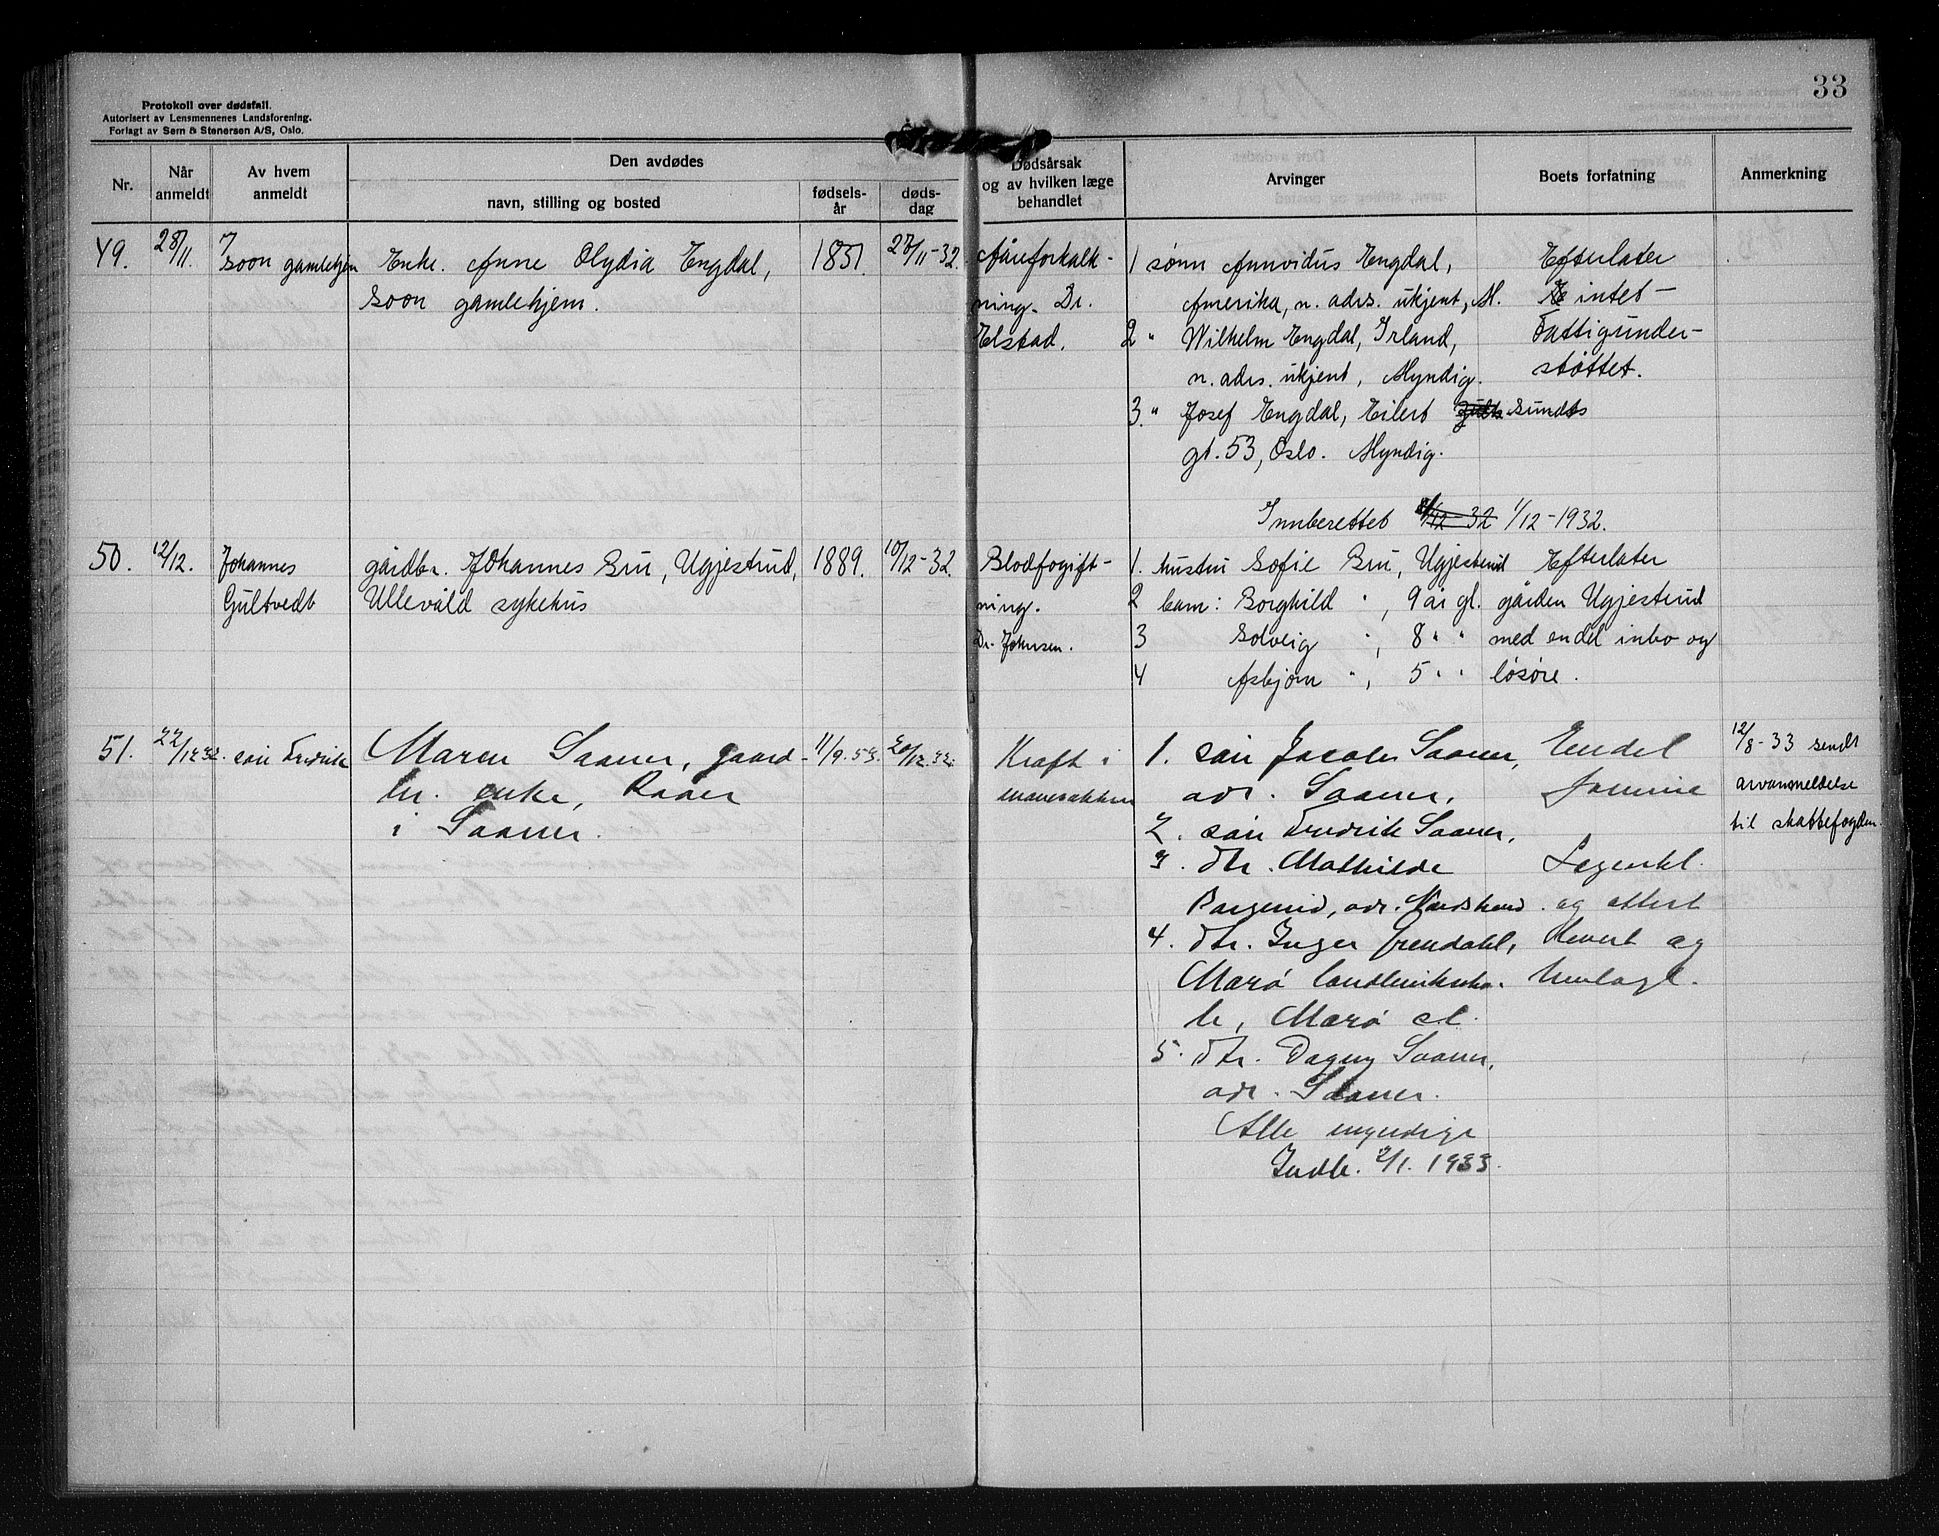 33
Protokoll over dødsfall.
Autorisert av Lensmennenes Landsforening.
Forlagt av Sem & Stenersen A/S, Oslo.
Nr.
Når anmeldt
Av hvem anmeldt
Den avdødes
navn, stilling og bosted
fødsels-
år
døds-
dag
Dødsårsak
og av hvilken læge
behandlet
Arvinger
Boets forfatning
Anmerkning
49.
28/11.
Soon gamlehjem
Enke. Anne Olydia Engdal,
Soon gamlehjem.
1851.
27/11-32.
Aareforkalk-
ning. Dr.
Elstad.
1 sønn Annvidus Engdal,
Amerika, n. adrs. ukjent, M.
2 " Wilhelm Engdal, Irland,
n. adrs. ukjent, Myndig.
3. " Josef Engdal, Eilert Sundts
gt. 53, Oslo. Myndig.
Innberettet 1/12-1932.
Efterlater
intet -
Fattigunder-
støttet.
50.
12/12.
Johannes
Gultvedt
gårdbr. Johannes Bru, Ugjestrud,
Ullevåld sykehus
1889.
10/12-32.
Blodfogift-
ning.
Dr. Johnsen.
1. hustru Sofie Bru, Ugjestrud
2 barn: Borghild " , 9 år gl.
3 Solveig " , 8 " "
4 Asbjørn " , 5 " "
Efterlater
gården Ugjestrud
med endel inbo og
løsøre.
51.
22/12 32.
søn Fredrik
Maren Saaner, gaard-
br. enke, Raaer
i Saaner.
11/9.53.
20/12.32.
Kræft i
mavesækken
1. søn Jacob Saaner,
adr. Saaner.
2. søn Fredrik Saaner,
3. dtr. Mathilde
adr. Nordstrand.
4. dtr. Inger Grendahl,
Marø
br, Marø st.
5. dtr. Dagny Saaner,
adr. Saaner.
Alle myndige
Indb. 2/1. 1933.
Endel
formue
og attest
12/8-33 sendt
arvanmeldelse
til skattefogden.